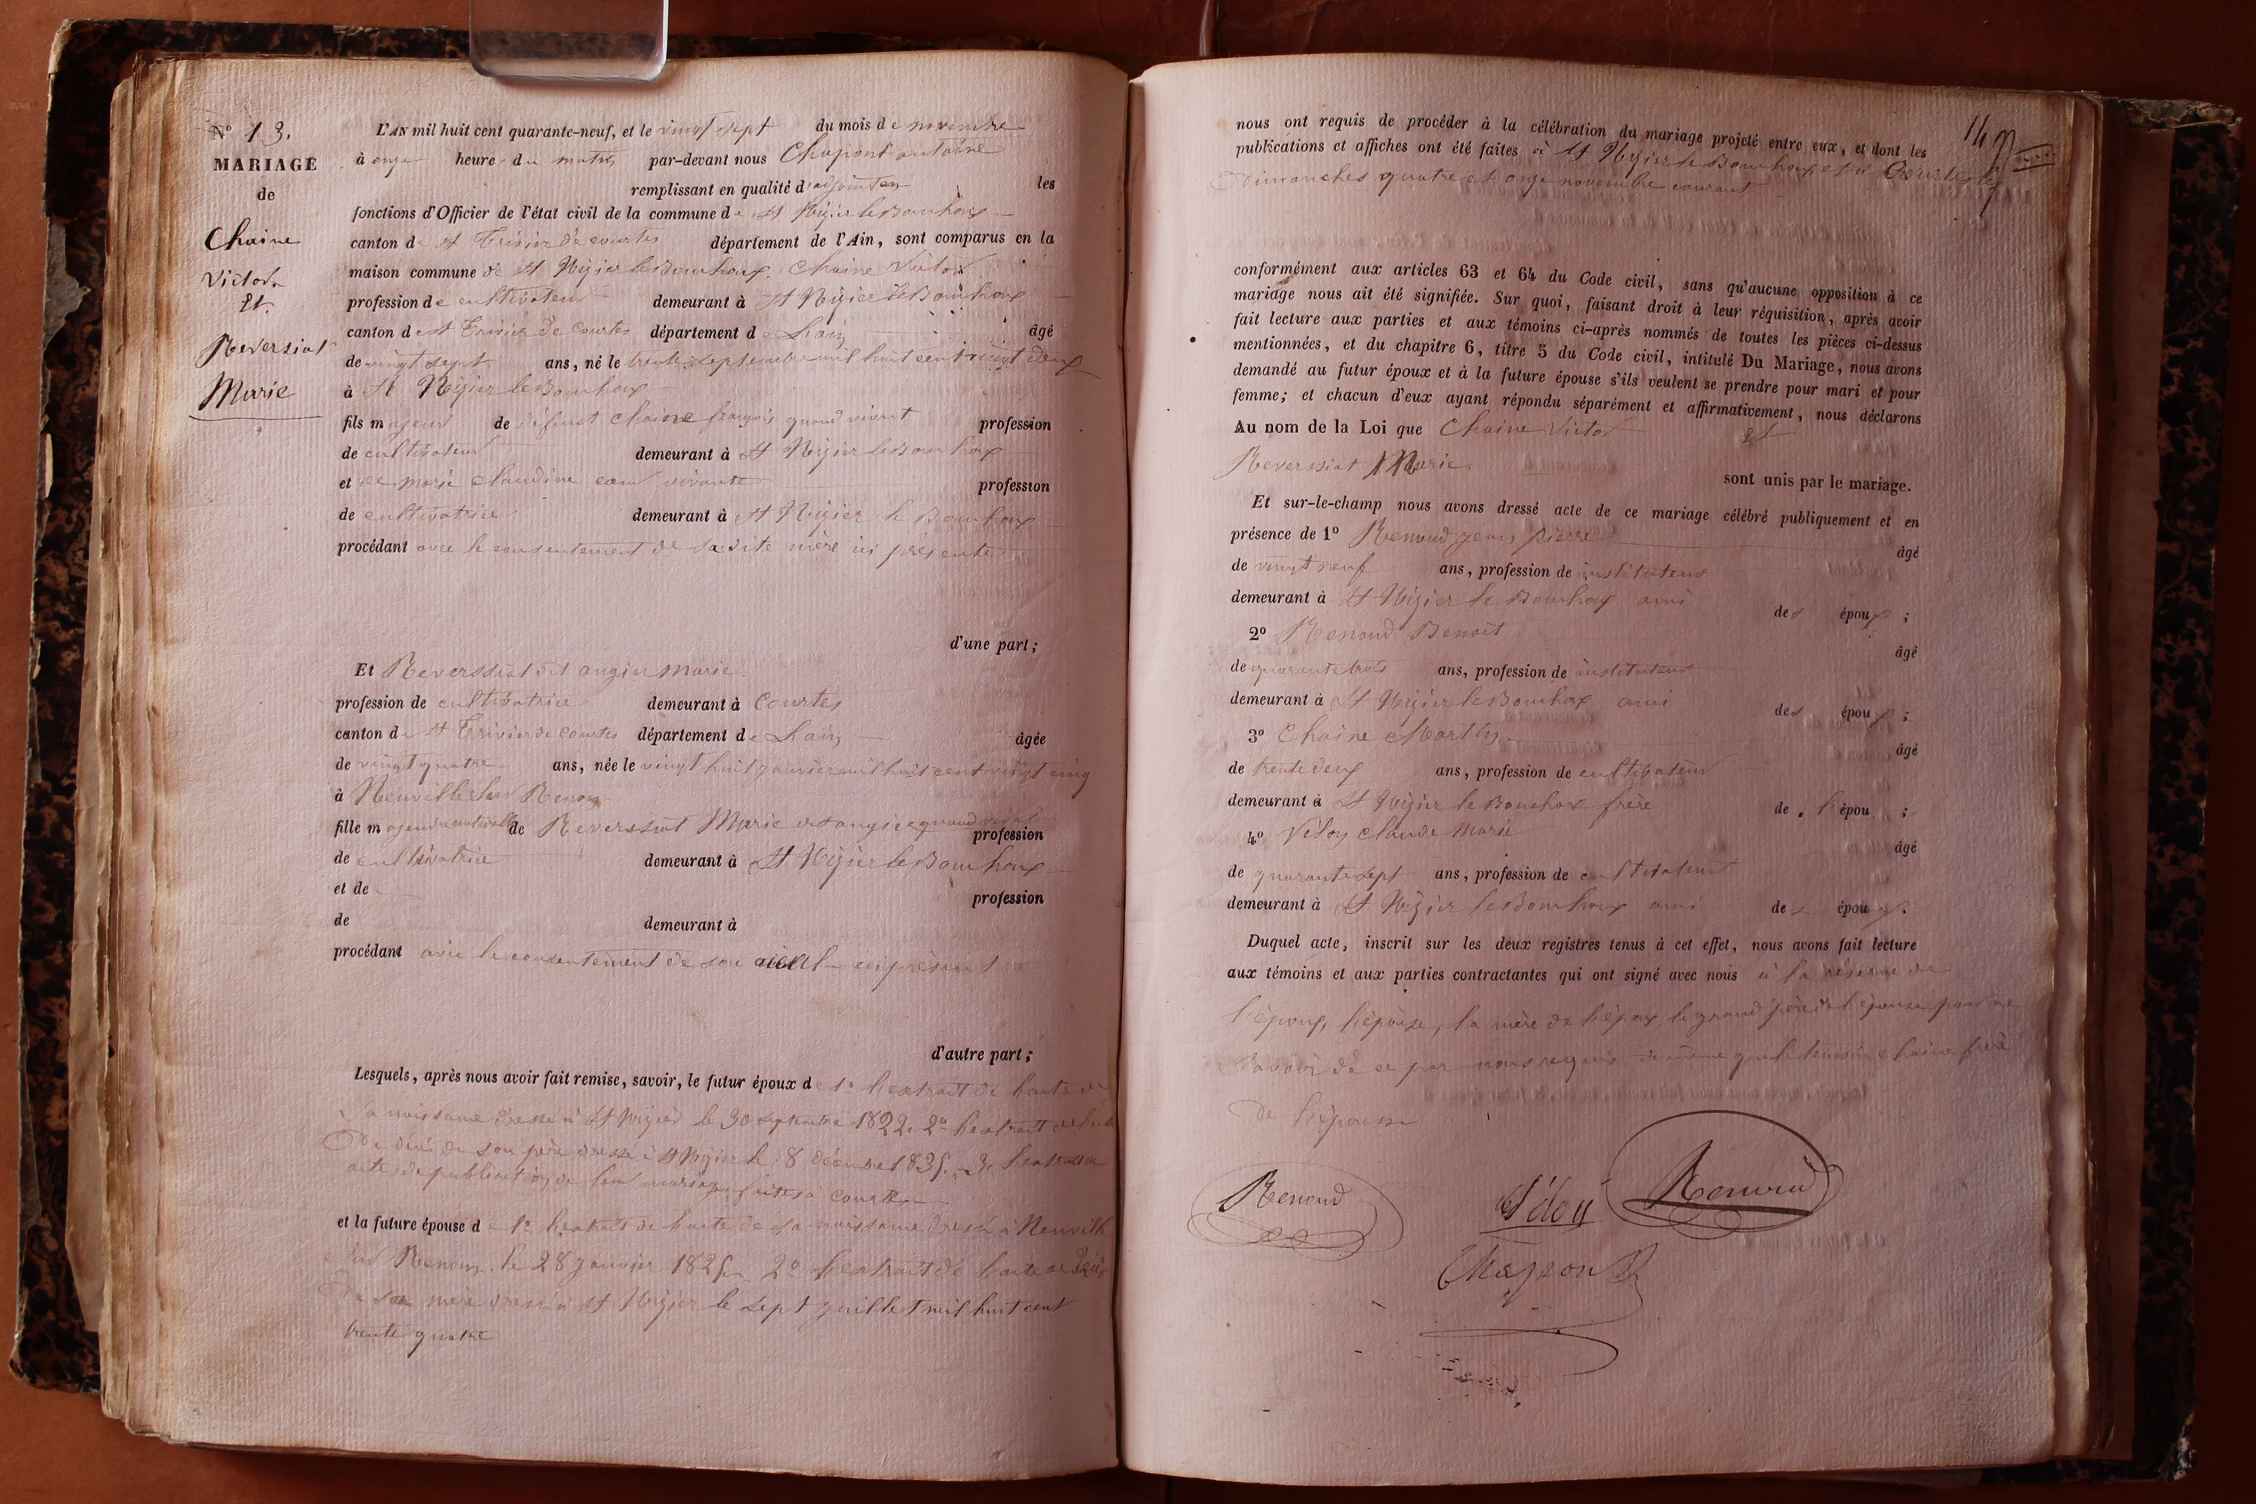 N° 13.
MARIAGE
de
Chaine
Victor
Et
Reverssiat
Marie
L'AN mil huit cent quarante-neuf, et le vingt sept du mois de novembre
à onze heure du matin par-devant nous Chapont antoine
remplissant en qualité d'adjoint les
fonctions d'Officier de l'état civil de la commune de St Nizier le Bouchoux
canton de St Trivier de courtes département de l'Ain, sont comparus en la
maison commune de St Nizier le Bouchoux Chaine Victor
profession de cultivateur demeurant à St Nizier le Bouchoux
canton de St Trivier de Courtes département de Lain âgé
de vingt sept ans, né le trente septembre mil huit cent vingt deux
à St Nizier le Bouchoux
fils majeur de défunt Chaine françois quand vivait profession
de cultivateur demeurant à St Nizier le Bouchoux
et de marie claudine vivante profession
de cultivatrice demeurant à St Nizier le Bouchoux
procédant avec le consentement de sa dite mère ici présente
d'une part;
Et Reverssiat dit angier Marie
profession de cultivatrice demeurant à Courtes
canton de St Trivier de Courtes département de Lain âgée
de vingt quatre ans, née le vingt huit janvier mil huit cent vingt cinq
à Neuville Sur Renon
fille majeure naturelle de Reverssiat Marie quand vivait profession
de cultivatrice demeurant à St Nizier le Bouchoux
et de profession
de demeurant à
procédant avec le consentement de son aieul ici présent
d'autre part;
Lesquels, après nous avoir fait remise, savoir, le futur époux de 1° l'extrait de l'acte de
sa naissance dressé à St Nizier le 30 septembre 1822, 2° l'extrait de l'acte
de décé de son père dressé à St Nizier le 8 décembre 1835, 3° l'extrait de
acte de publication de leur mariage faites à courtes
et la future épouse de 1° l'extrait de l'acte de sa naissance dressé à Neuville
Sur Renon le 28 janvier 1825, 2° l'extrait de l'acte de décé
de sa mère dressé à St Nizier le sept juillet mil huit cent
trente quatre
149
nous ont requis de procéder à la célébration du mariage projeté entre eux, et dont les
publications et affiches ont été faites à St Nizier le Bouchoux et à Courtes les
Dimanches quatre et onze novembre courant
conformément aux articles 63 et 64 du Code civil, sans qu'aucune opposition à ce
mariage nous ait été signifiée. Sur quoi, faisant droit à leur réquisition, après avoir
fait lecture aux parties et aux témoins ci-après nommés de toutes les pièces ci-dessus
mentionnées, et du chapitre 6, titre 5 du Code civil, intitulé Du Mariage, nous avons
demandé au futur époux et à la future épouse s'ils veulent se prendre pour mari et pour
femme; et chacun d'eux ayant répondu séparément et affirmativement, nous déclarons
Au nom de la Loi que Chaine Victor Et
Reverssiat Marie
sont unis par le mariage.
Et sur-le-champ nous avons dressé acte de ce mariage célébré publiquement et en
présence de 1° Renoud jean pierre âgé
de vingt neuf ans, profession de instituteur
demeurant à St Nizier le Bouchoux ami des époux;
2° Renoud Benoit âgé
de quarante trois ans, profession de instituteur
demeurant à St Nizier le Bouchoux ami des époux;
3° Chaine Marthy âgé
de trente deux ans, profession de cultivateur
demeurant à St Nizier le Bouchoux frère de l'épou;
4° Vidoy claude marie âgé
de quarante sept ans, profession de cultivateur
demeurant à St Nizier le Bouchoux ami des époux.
Duquel acte, inscrit sur les deux registres tenus à cet effet, nous avons fait lecture
aux témoins et aux parties contractantes qui ont signé avec nous à la réserve de
l'époux, l'épouse, la mère de l'époux le grand père de l'épouse pour ne
savoir dé ce par nous requis de même que le témoin chaine frère
de l'épouse
Renoud
Renoud